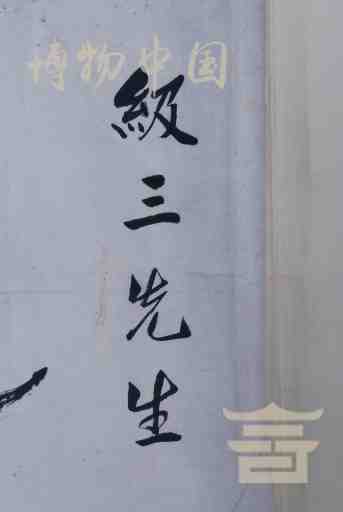 博物中国
級三先生